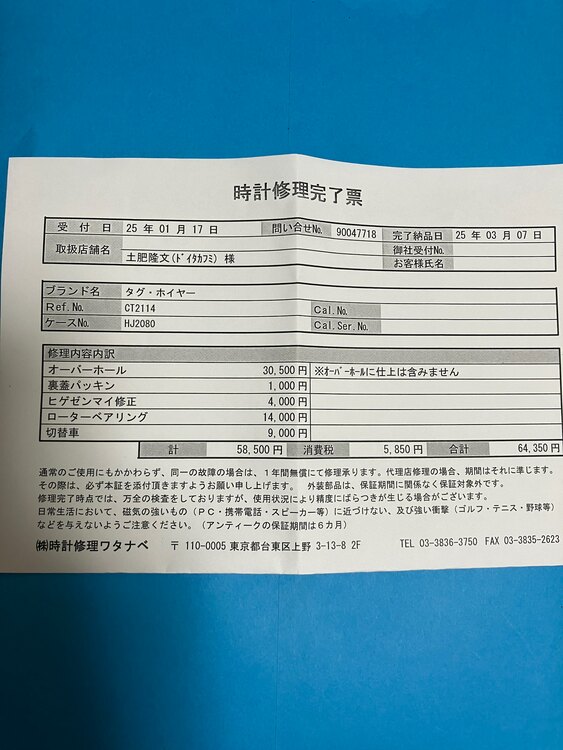 時計修理完了票
受付日 25 年 01 月 17 日 問い合せNo. 90047718 完了納品日 25 年 03 月 07 日
取扱店舗名 土肥隆文(ﾄﾞｲﾀｶﾌﾐ) 様 御社受付No.
お客様氏名
ブランド名 タグ・ホイヤー
Ref.No. CT2114 Cal.No.
ケースNo. HJ2080 Cal.Ser.No.
修理内容内訳
オーバーホール 30,500 円 ※ｵｰﾊﾞｰﾎｰﾙに仕上は含みません
裏蓋パッキン 1,000 円
ヒゲゼンマイ修正 4,000 円
ローターベアリング 14,000 円
切替車 9,000 円
計 58,500 円 消費税 5,850 円 合計 64,350 円
通常のご使用にもかかわらず、同一の故障の場合は、１年間無償にて修理承ります。代理店修理の場合、期間はそれに準じます。
その際は、必ず本証を添付頂きますようお願い申し上げます。 外装部品は、保証期間に関係なく保証対象外です。
修理完了時点では、万全の検査をしておりますが、使用状況により精度にばらつきが生じる場合がございます。
日常生活において、磁気の強いもの（ＰＣ・携帯電話・スピーカー等）に近づけない、及び強い衝撃（ゴルフ・テニス・野球等）
などを与えないようご注意ください。（アンティークの保証期間は６カ月）
㈱時計修理ワタナベ 〒 110-0005 東京都台東区上野 3-13-8 2F TEL 03-3836-3750 FAX 03-3835-2623